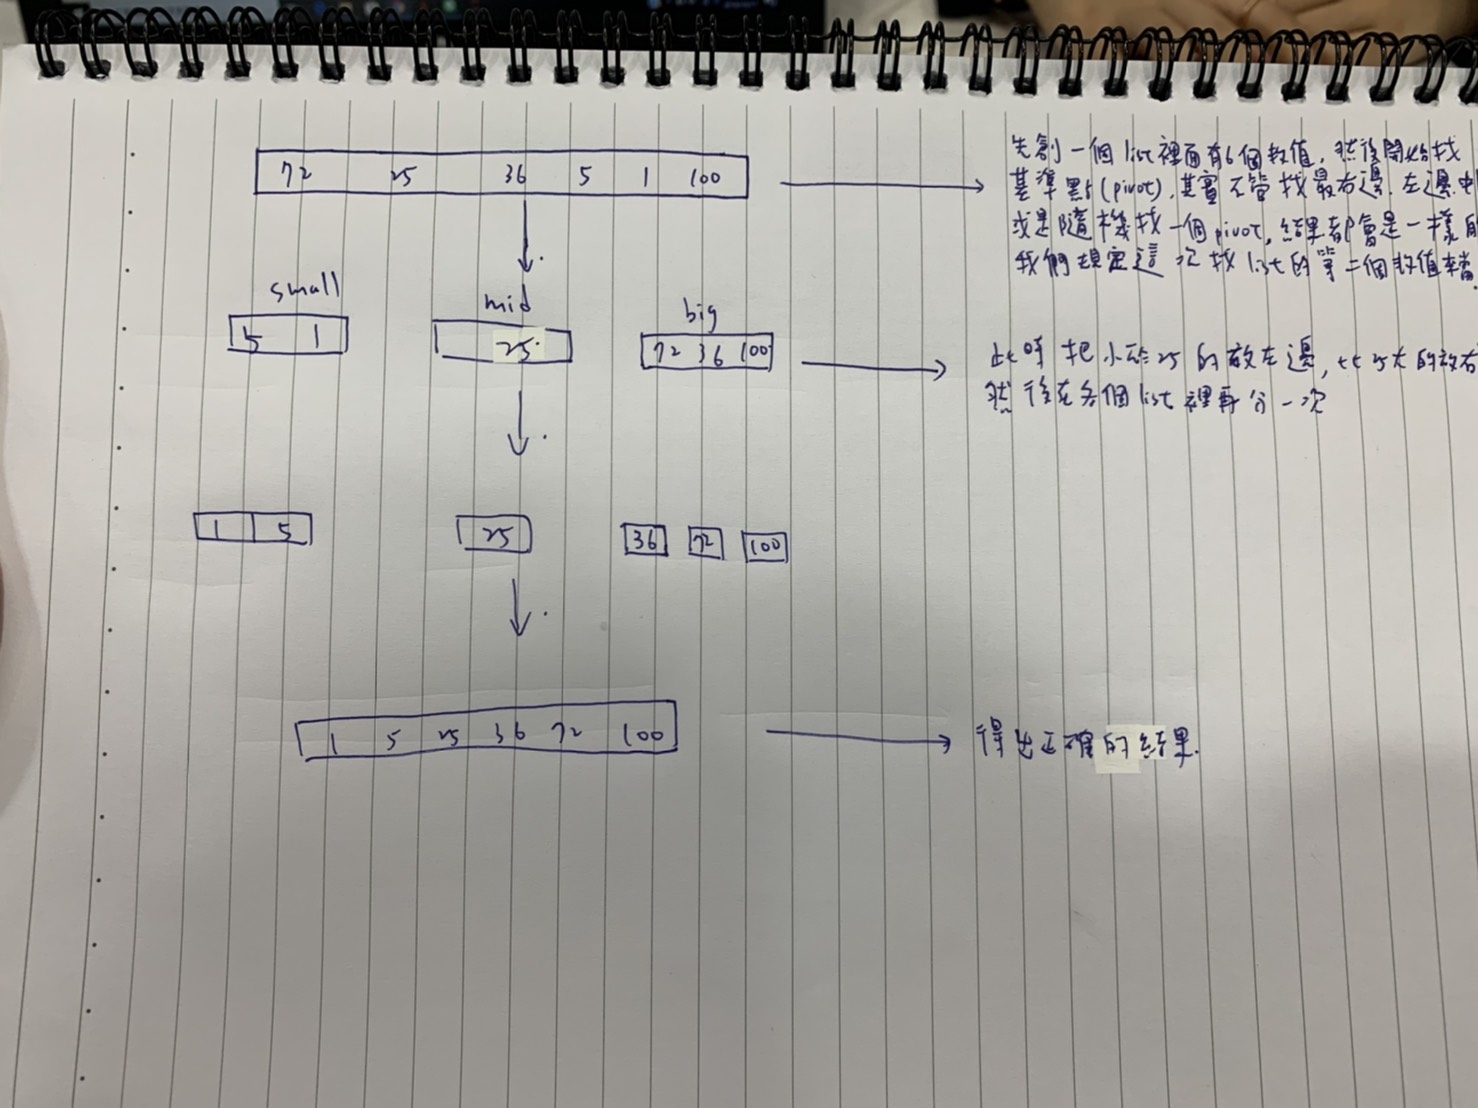 72 25 36 5 1 100
先創一個list裡面有6個數值，然後開始找
基準點(pivot)，其實不管找最右邊、左邊、中
或是隨機找一個pivot，結果都會是一樣的
我們規定這次找list的第二個數值來當
small mid big
5 1 25 72 36 100
此時把小於25的放左邊，比25大的放右
然後在各個list裡再分一次
1 5 25 36 72 100
1 5 25 36 72 100
得出正確的結果.